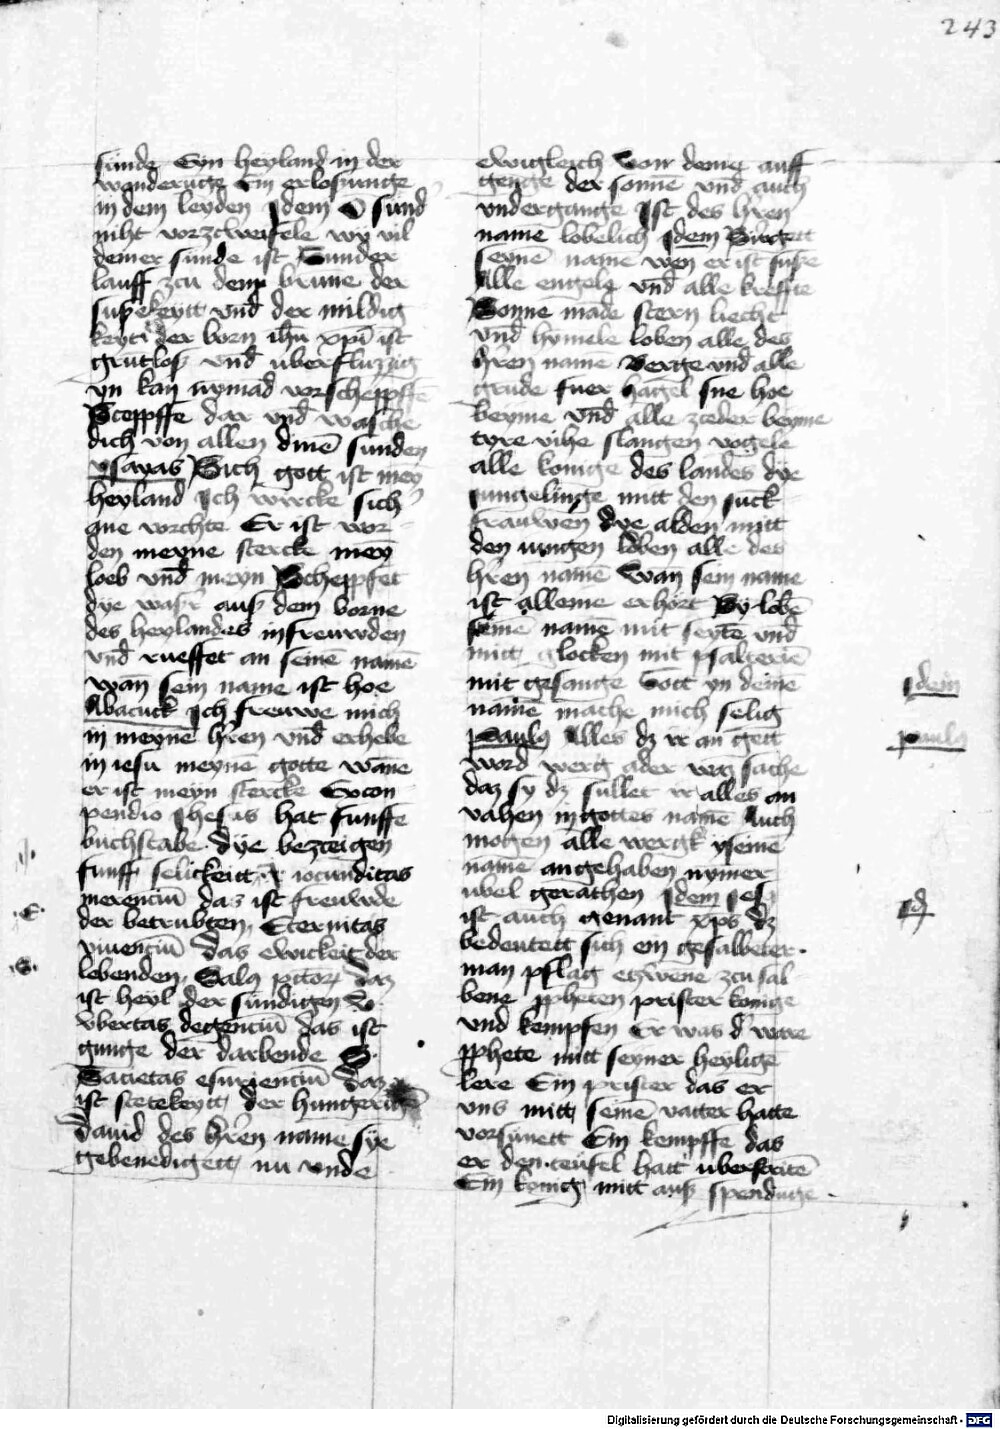 243
sunde Eyn heyland in der
wanderunge Ein erlosunge
in dem leyden Idem O sund
niht vorzcweifele wy vil
deiner sunde ist Sunder
lauff zcu dem brune der
susekeytt vnd der mildig
keyt der born ihu xpi ist
gruntlos vnd uberfluzzig
yn kan nymad vorscheppffe
Sceppffe dar vnd wasche
dich von allen dine sunden
ysayas Sich gott ist mey
heyland Ich wircke sich
ane vorchte Er ist wor
den meyne stercke mey
loeb vnd meyn Scheppfet
dye wasr aus dem borne
des heylandes in freuwden
vnd rueffet an seine name
wan sein name ist hoe
Abacuck Ich freuwe mich
in meyne hren vnd erhebe
in iesu meyne gotte wane
er ist meyn stercke Ex con
pendio Ihesus hat funffe
buchstabe dye bezceigen
funff selickeitt I iocunditas
merenciu daz ist freuwde
der betrubten Eternitas
viuenciu das ewickeit der
lebenden Salus pctor daz
ist heyl der sundigen V
vbertas degenciu das ist
gnuge der darbende S
Sacietas esurienciu daz
ist stetekeytt der hungerichen
Dauid des hren name sye
gebenedigett nu vnde
ewigleich Von deme auff
genge der sonne vnd auch
vndergange Ist des hren
name lobelich Idem
seyne name wen er ist susze
Alle engele vnd alle kreffte
Sonne made stern liecht
vnd hymele loben alle des
hren name Berge vnd alle
grude fuer hagel sne hoe
beyme vnd alle zceder beyme
tyre vihe slangen vogele
alle konige des landes dye
iungelinge mitt den iuck
frauwen dye alden mitt
den iungen loben alle des
hren name Wan sein name
ist alleine erhort Sy lobe
seine name mit seyte vnd
mitt glocken mit psalterie
mit gesange Gott yn deine
name mache mich selig
Paulus Alles dz ir an gett
word werg ader sache
daz sy dz sullet ir alles an
vahen in gottes name Auch
mogen alle wergk yn seine
name angehaben nymer
ubel gerathen Idem
ist auch genant xps dz
bedeutett sich ein gesalbeter
man pflag etzwene zcu sal
bene ppheten prister konige
vnd kempfen Er was d ware
pphete mitt seyner heylige
lere Ein prister das er
vns mitt seine vatter hatte
vorsunett Ein kempffe das
er den teufel hatt uberstrite
Ein konig mitt aus spendunge
Idem
paulus
E
S
Digitalisierung gefördert durch die Deutsche Forschungsgemeinschaft - DFG